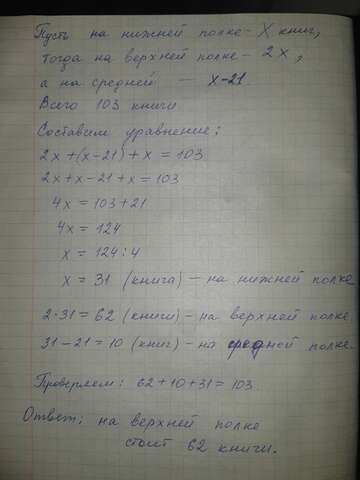 Пусть на нижней полке - X книг,
тогда на верхней полке - 2x,
а на средней — x-21
Всего 103 книги
Составим уравнение:
2x+(x-21)+x=103
2x+x-21+x=103
4x = 103+21
4x = 124
x = 124:4
x = 31 (книга) - на нижней полке
2·31=62 (книги) - на верхней полке
31-21=10 (книг) - на средней полке.
Проверяем: 62+10+31=103
Ответ: на верхней полке
стоит 62 книги.